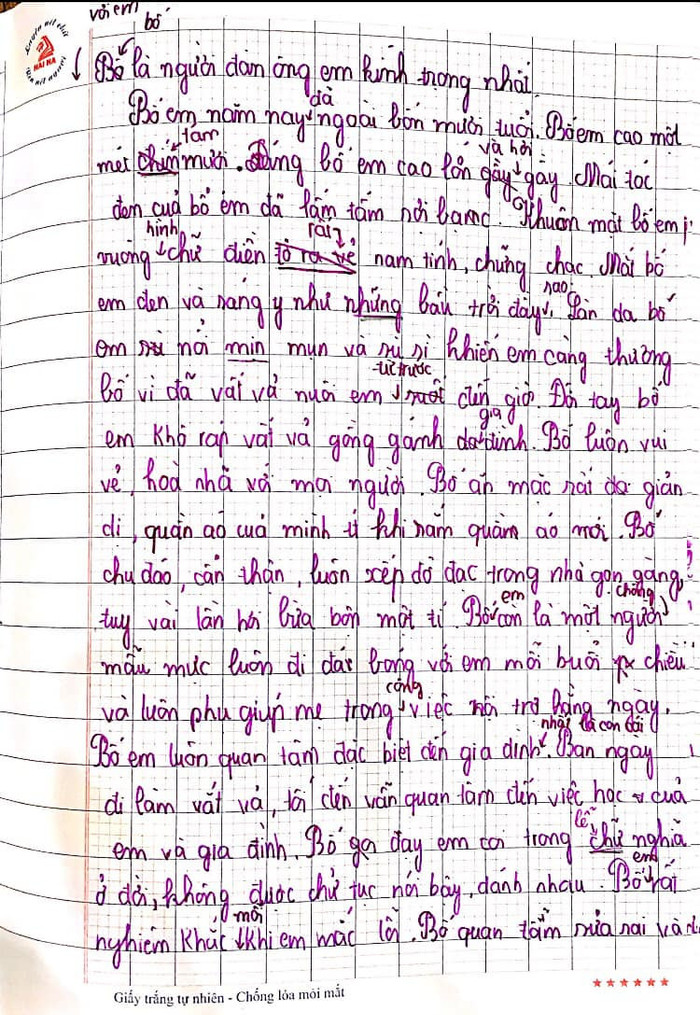 với em bố
Bố là người đàn ông em kính trọng nhất.
đã
Bố em năm nay ngoài bốn mươi tuổi. Bố em cao một
tám và hơi
mét chín mươi. Dáng bố em cao lớn gầy gầy. Mái tóc
đen cuả bố em đã lấm tấm sợi bạc. Khuôn mặt bố em
hình rất
vuông chữ điền tỏ ra vẻ nam tính, chững chạc. Mắt bố
sao
em đen và sáng y như những bầu trời đầy. Làn da bố
em nổi mịn mụn và sù sì khiến em càng thương
từ trước
bố vì đã vất vả nuôi em suốt đến giờ. Đôi tay bố
gia
em khô ráp vất vả gồng gánh đình. Bố luôn vui
vẻ, hoà nhã với mọi người. Bố ăn mặc rất giản
dị, quần aó cuả mình ít khi sắm quần áo mới. Bố
chu đáo, cẩn thận, luôn xếp đồ đạc trong nhà gọn gàng,
em chồng
tuy vài lần hơi bừa bộn một tí. Bố còn là một người
mẫu mực luôn đi đá bóng với em mỗi buổi chiều
công
và luôn phụ giúp mẹ trong việc nội trợ hằng ngày.
nhất là con cái
Bố em luôn quan tâm đặc biệt đến gia đình. Ban ngày
đi làm vất vả, tối đến vẫn quan tâm đến việc học cuả
lễ
em và gia đình. Bố dạy em coi trọng chữ nghĩa
em
ở đời, không được chử tục nói bậy, đánh nhau. Bố rất
mỗi
nghiêm khắc khi em mắc lỗi. Bố quan tâm sửa sai và
Giấy trắng tự nhiên - Chống lóa mỏi mắt